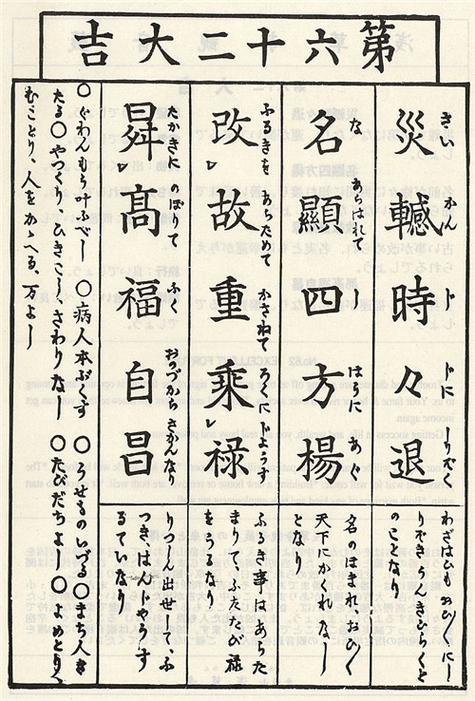 第六十二大吉
災轗時々退
さい かん じ ゞ しりぞく
わざはひもおひ〱にし
りぞきうんきひらくと
のことなり
名顯四方楊
な あらはれて しはうに あぐ
名のほまれ、おひ〱
天下にかくれなし
となり
改故重乗禄
ふるきを あらためて かさねて ろくに じようず
ふるき事はあらた
まりて、ふたたび禄
をうるなり
曻髙福自昌
たかきに のぼりて ふく おのづから さかんなり
りつしん出世して、ふ
つき、はんじやうす
るていなり
〇ぐわんもう叶ふべし 〇病人本ぶくす 〇うせものいづる〇まち人き
たる〇やづくりひつこしさわりなし 〇たびだちよし〇よめとり
むことり、人をかゝへる、万よし